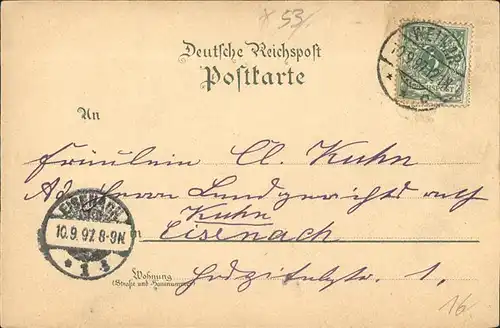 x 53/
Deutsche Reichspost
Postkarte
WEIMAR
10.9.97.
An
Fräulein Cl. Kuhn
Adr Herrn Landgerichtsrath
Kuhn
in Eisenach
EISENACH
10.9.97. 8-9N.
* 1
Wohnung
(Straße und Hausnummer)
1.
16